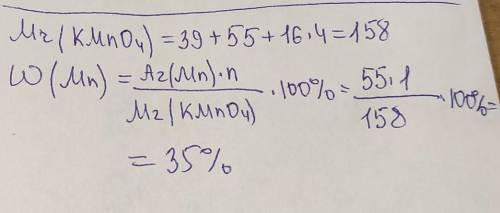 Mr(KMnO₄) = 39 + 55 + 16 · 4 = 158
ω(Mn) = Ar(Mn) · n / Mr(KMnO₄) · 100% = 55 · 1 / 158 · 100% =
= 35%